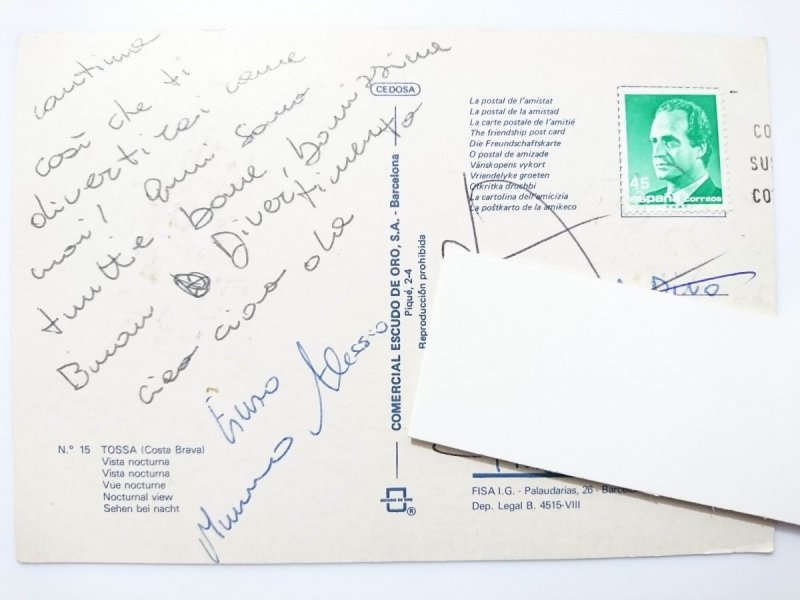 continua
così che ti
divertirai come
noi! Qui sono
tutte bone, bonissime
Buon Divertimento
ciao ciao
Enzo
Alessio
Mummo
CEDOSA
COMERCIAL ESCUDO DE ORO, S.A. - Barcelona
Piqué, 2-4
Reproducción prohibida
ESCUDO DE ORO
®
La postal de l'amistat
La postal de la amistad
La carte postale de l'amitié
The friendship post card
Die Freundschaftskarte
O postal de amizade
Vänskopens vykort
Vriendelyke groeten
Otkritka droehbi
La cartolina dell'amicizia
La poŝtkarto de la amikeco
45
españa correos
CO
SUS
CO
N.° 15 TOSSA (Costa Brava)
Vista nocturna
Vista nocturna
Vue nocturne
Nocturnal view
Sehen bei nacht
FISA I.G. - Palaudarias, 26 - Barcelo
Dep. Legal B. 4515-VIII